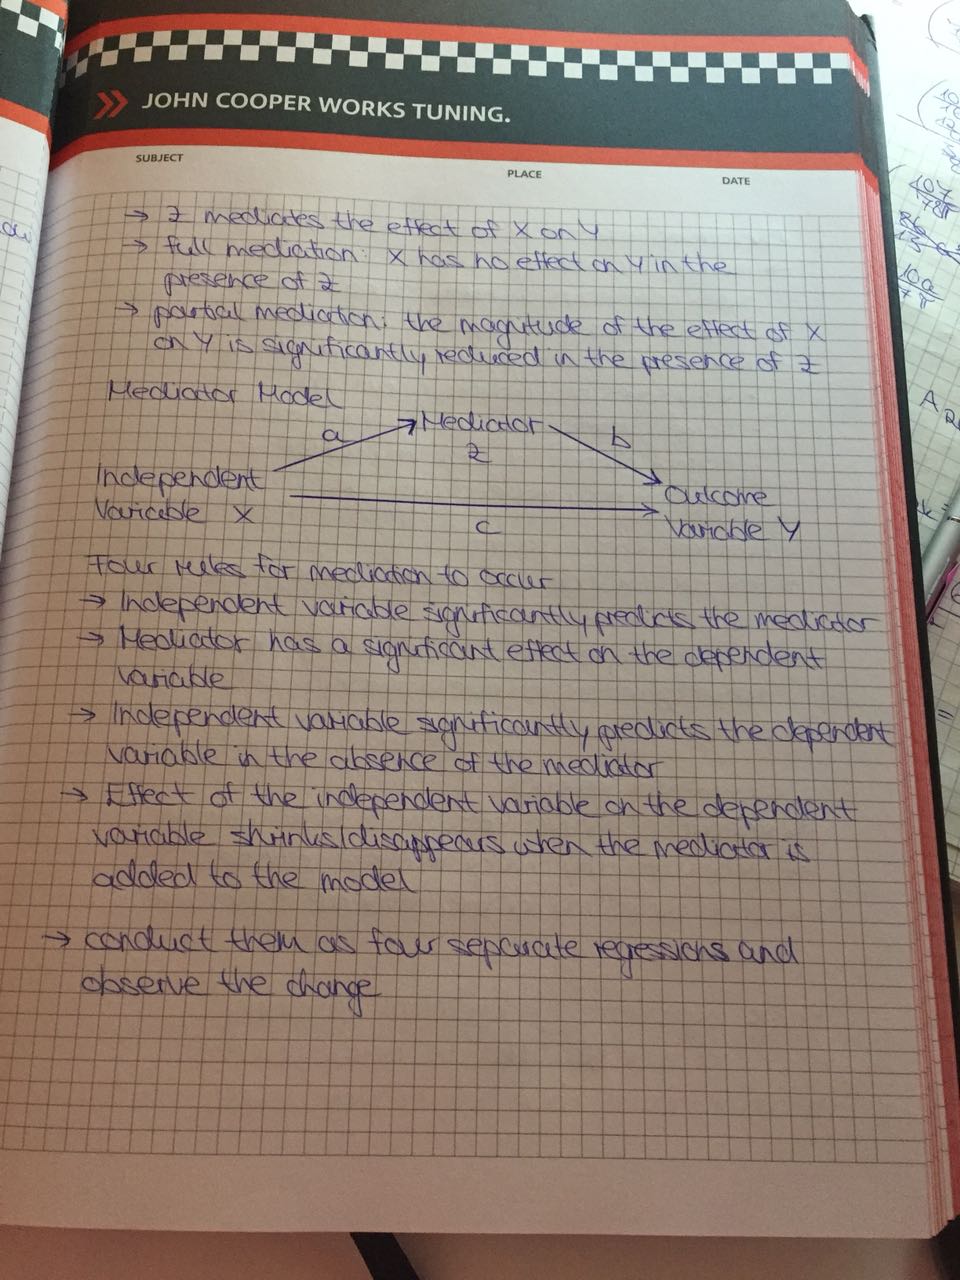 JOHN COOPER WORKS TUNING.
SUBJECT
PLACE
DATE
→ Z mediates the effect of X on Y
→ full mediation: X has no effect on Y in the
presence of Z
→ partial mediation: the magitude of the effect of X
on Y is significantly reduced in the presence of Z
Mediator Model
a
Mediator
Z
b
Independent
Variable X
Outcome
Variable Y
c
Four rules for mediation to occur
→ Independent variable significantly predicts the mediator
→ Mediator has a significant effect on the dependent
variable
→ Independent variable significantly predicts the dependent
variable in the absence of the mediator
→ Effect of the independent variable on the dependent
variable shrinks/disappears when the mediator is
added to the model
→ conduct them as four separate regressions and
observe the change